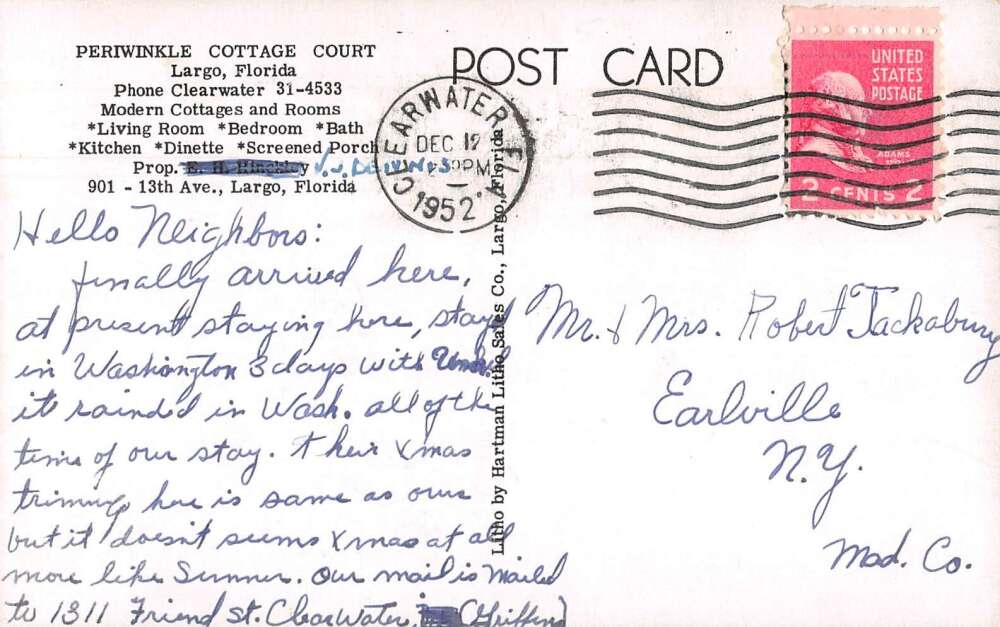 PERIWINKLE COTTAGE COURT
Largo, Florida
Phone Clearwater 31-4533
Modern Cottages and Rooms
*Living Room *Bedroom *Bath
*Kitchen *Dinette *Screened Porch
Prop. E. H. Hinckley
901 - 13th Ave., Largo, Florida
POST CARD
CLEARWATER FLA.
DEC 12
PM
1952
UNITED
STATES
POSTAGE
ADAMS
2 CENTS 2
Litho by Hartman Litho Sales Co., Largo, Florida
Hello Neighbors:
finally arrived here,
at present staying here, stayed
in Washington 3 days with
it raind'd in Wash. all of the
time of our stay. Their Xmas
triming here is same as ours
but it doesn't seems Xmas at all
more like Summer. Our mail is Mailed
to 1311 Friend St. ClearWater, (Griffin)
Mr. & Mrs. Robert Tackabury
Earlville
N.Y.
Mad. Co.